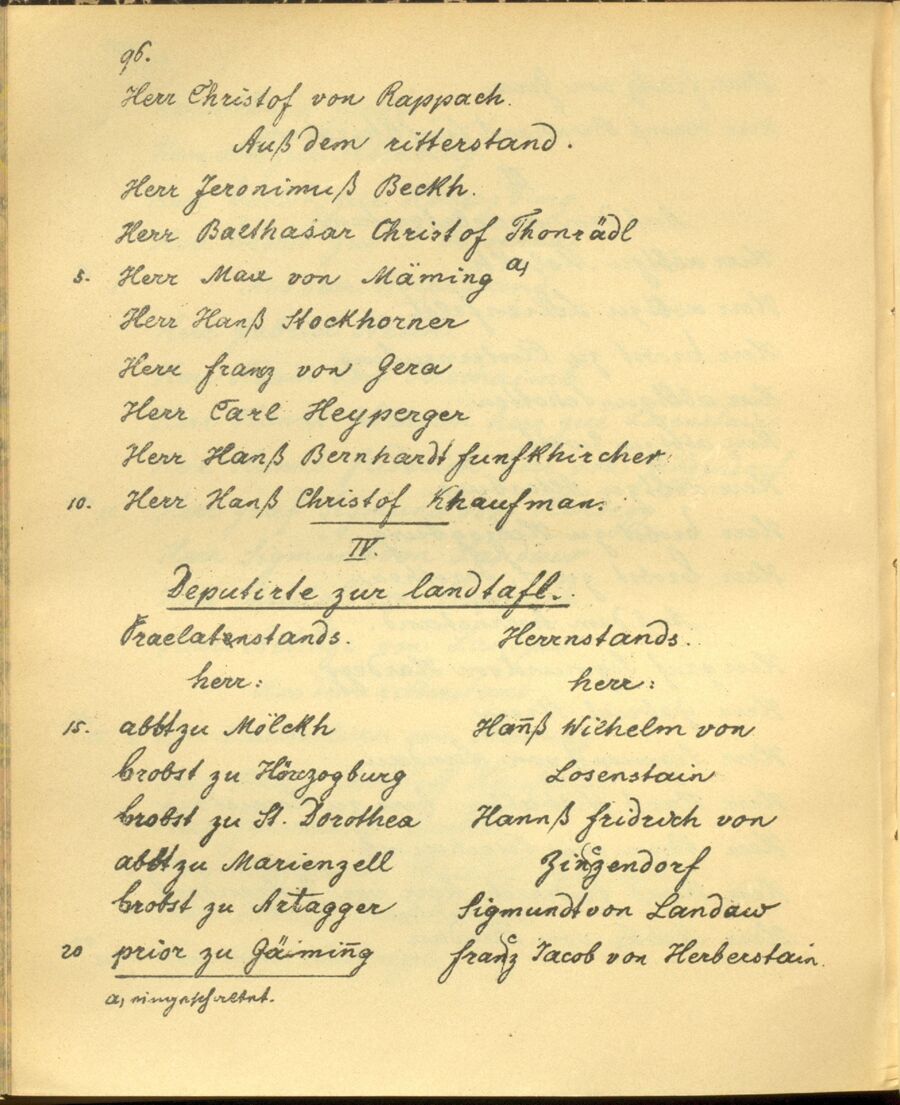 96.
Herr Christof von Rappach.
Auß dem ritterstand.
Herr Jeronimuß Beckh.
Herr Balthasar Christof Thonrädl
5. Herr Max von Mäming a)
Herr Hanß Stockhorner
Herr franz von Gera
Herr Carl Heyperger
Herr Hanß Bernhardt funfkhircher
10. Herr Hanß Christof Khaufman.
IV.
Deputirte zur landtafl.
Praelatenstands.
herr:
15. abbt zu Mölckh
brobst zu Hörzogburg
brobst zu St. Dorothea
abbt zu Marienzell
brobst zu Artagger
20 prior zu Gäming̅
Herrnstands.
herr:
Han̅ß Wilhelm von
Losenstain
Hannß fridrich von
Zinczendorf
Sigmundt von Landaw
francz Jacob von Herberstain.
a) eingeschaltet.